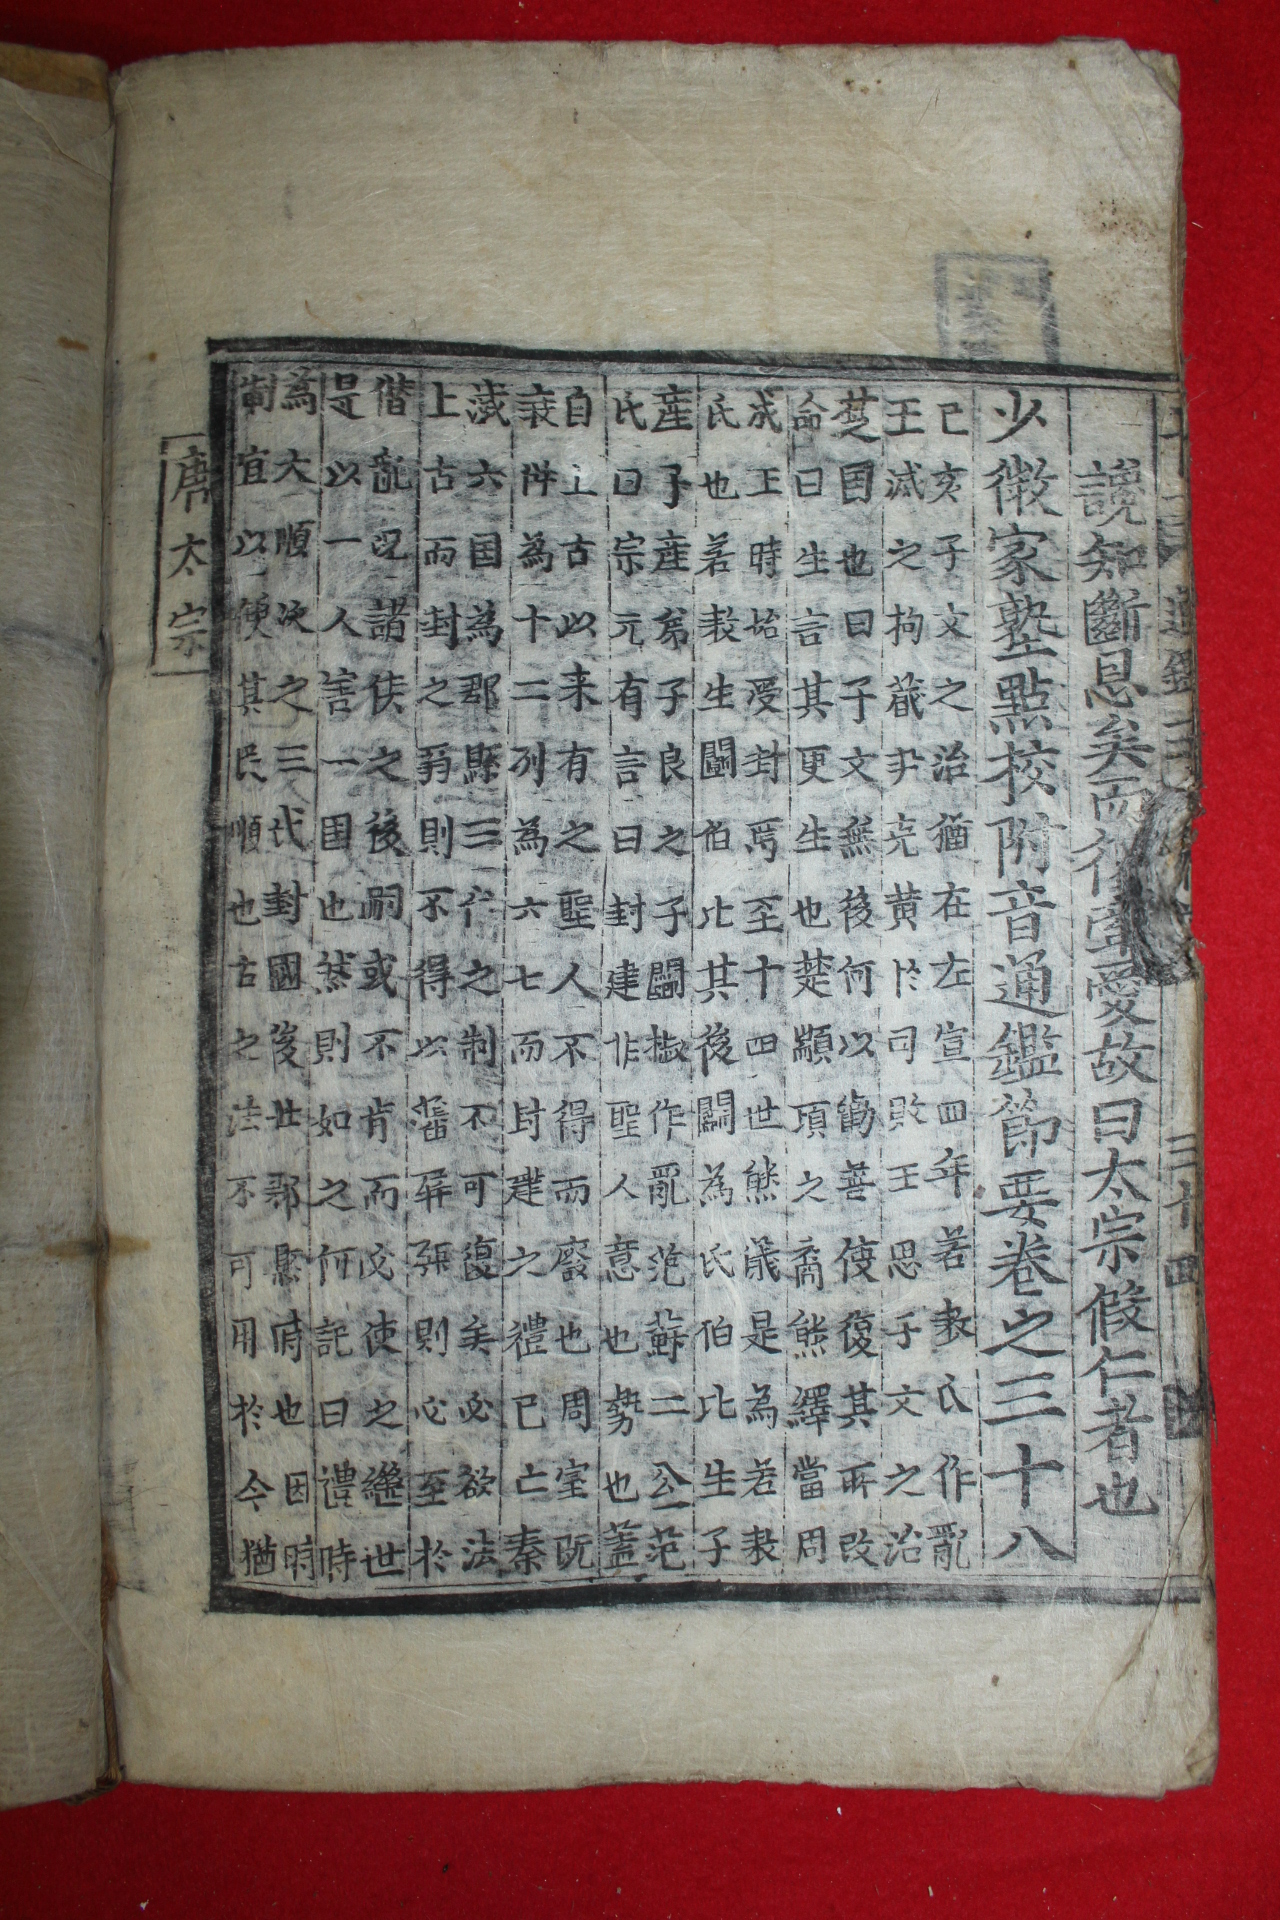 說知斷恩矣而後牽愛故曰太宗假仁者也
少微家塾點校附音通鑑節要卷之三十八
己亥子文之治猶在左宣四年若敖氏作亂
王滅之拘箴尹克黃於司敗王思子文之治
楚国也曰子文無後何以勸善使復其所改
命曰生言其更生也楚顓頊之裔熊繹當周
成王時始受封焉至十四世熊儀是為若敖
氏也若敖生鬪伯比其後鬪為氏伯比生子
産子産弟子良之子鬪椒作亂范蘇二公范
氏曰宗元有言曰封建非聖人意也勢也蓋
自上古以来有之聖人不得而廢也周室既
衰倂為十二列為六七而封建之禮已亡秦
滅六国為郡縣三代之制不可復矣必欲法
上古而封之弱則不得以藩屛强則必至於
僭亂况諸侯之後嗣或不肖而必使之繼世
是以一人害一国也然則如之何記曰禮時
為大順次之三代封國後世郡縣時也因時
制宜以便其民順也古之法不可用於今猶
唐太宗
三十四